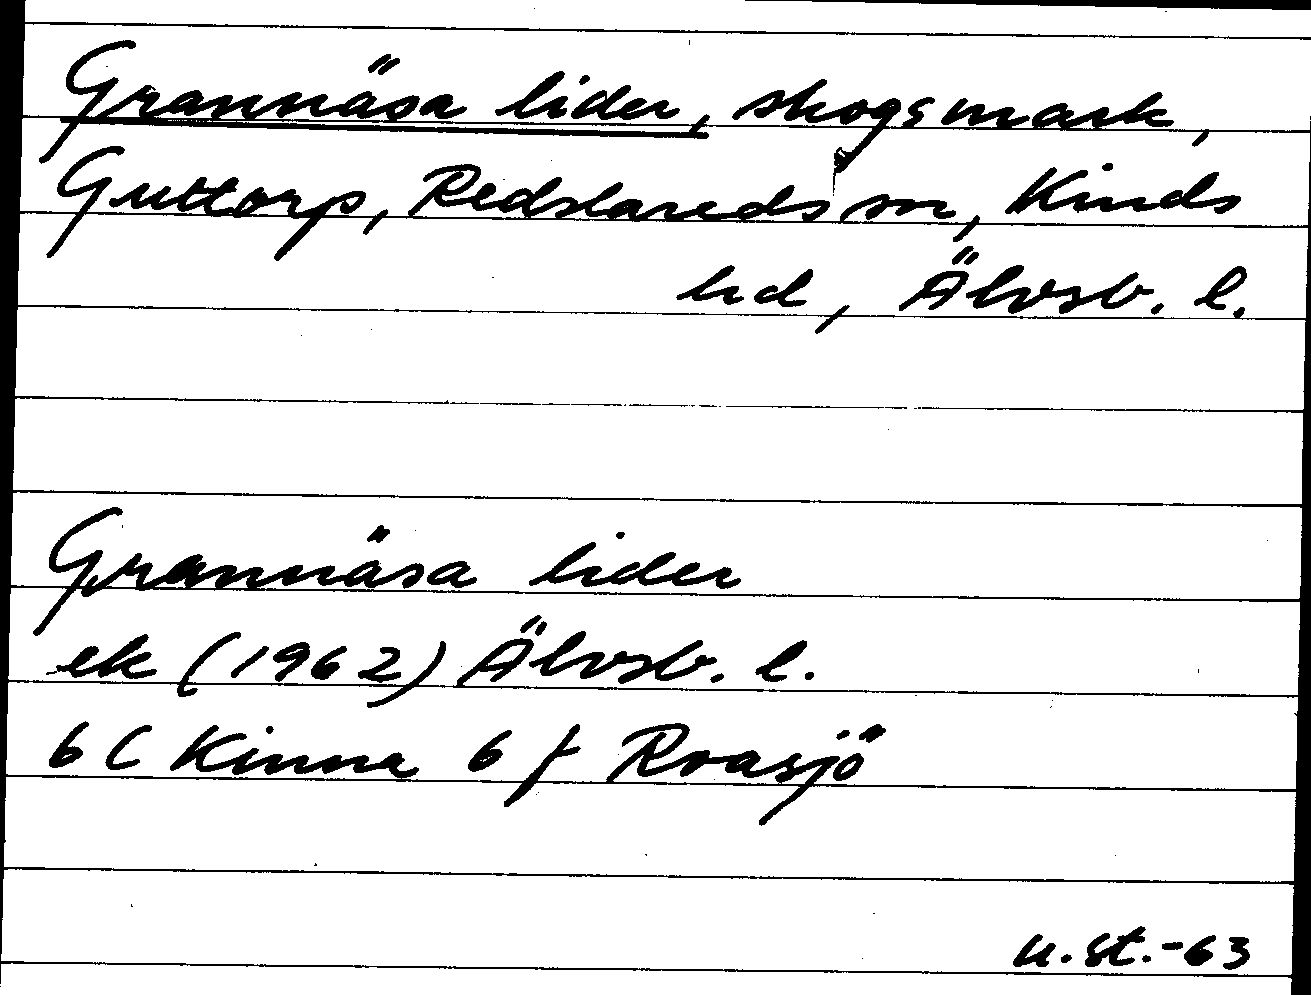 Grannäsa lider, skogsmark,
Guttorp, Redslareds sn, Kinds
hd, Älvsb. l.
Grannäsa lider
ek (1962) Älvsb. l.
6 C Kinna 6 f Roasjö
u.st.-63